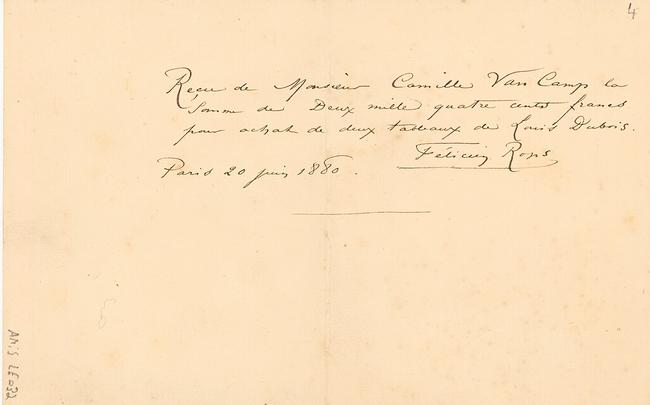 4
Reçu de Monsieur Camille Van Camp la
Somme de Deux mille quatre cents francs
pour achat de deux tableaux de Louis Dubois.
Félicien Rops
Paris 20 juin 1880.
AMIS LE=032